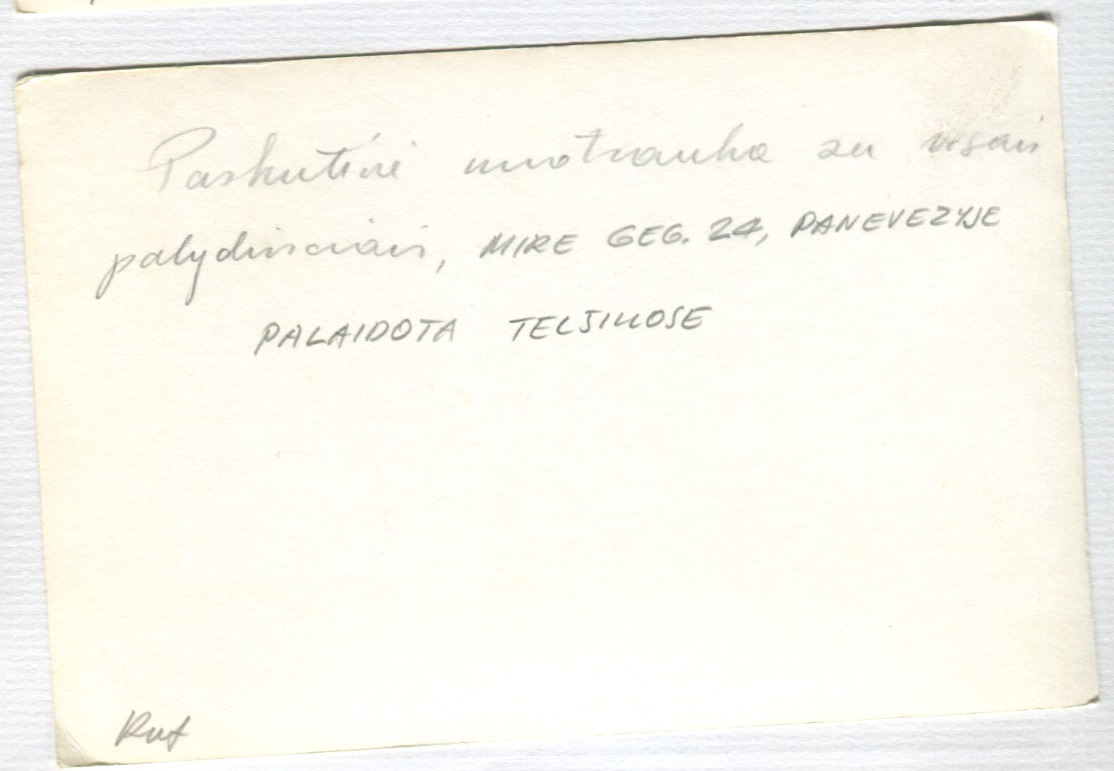 Paskutinė nuotrauka su visais
palydinčiais, MIRE GEG. 24, PANEVEZYJE
PALAIDOTA TELSIUOSE